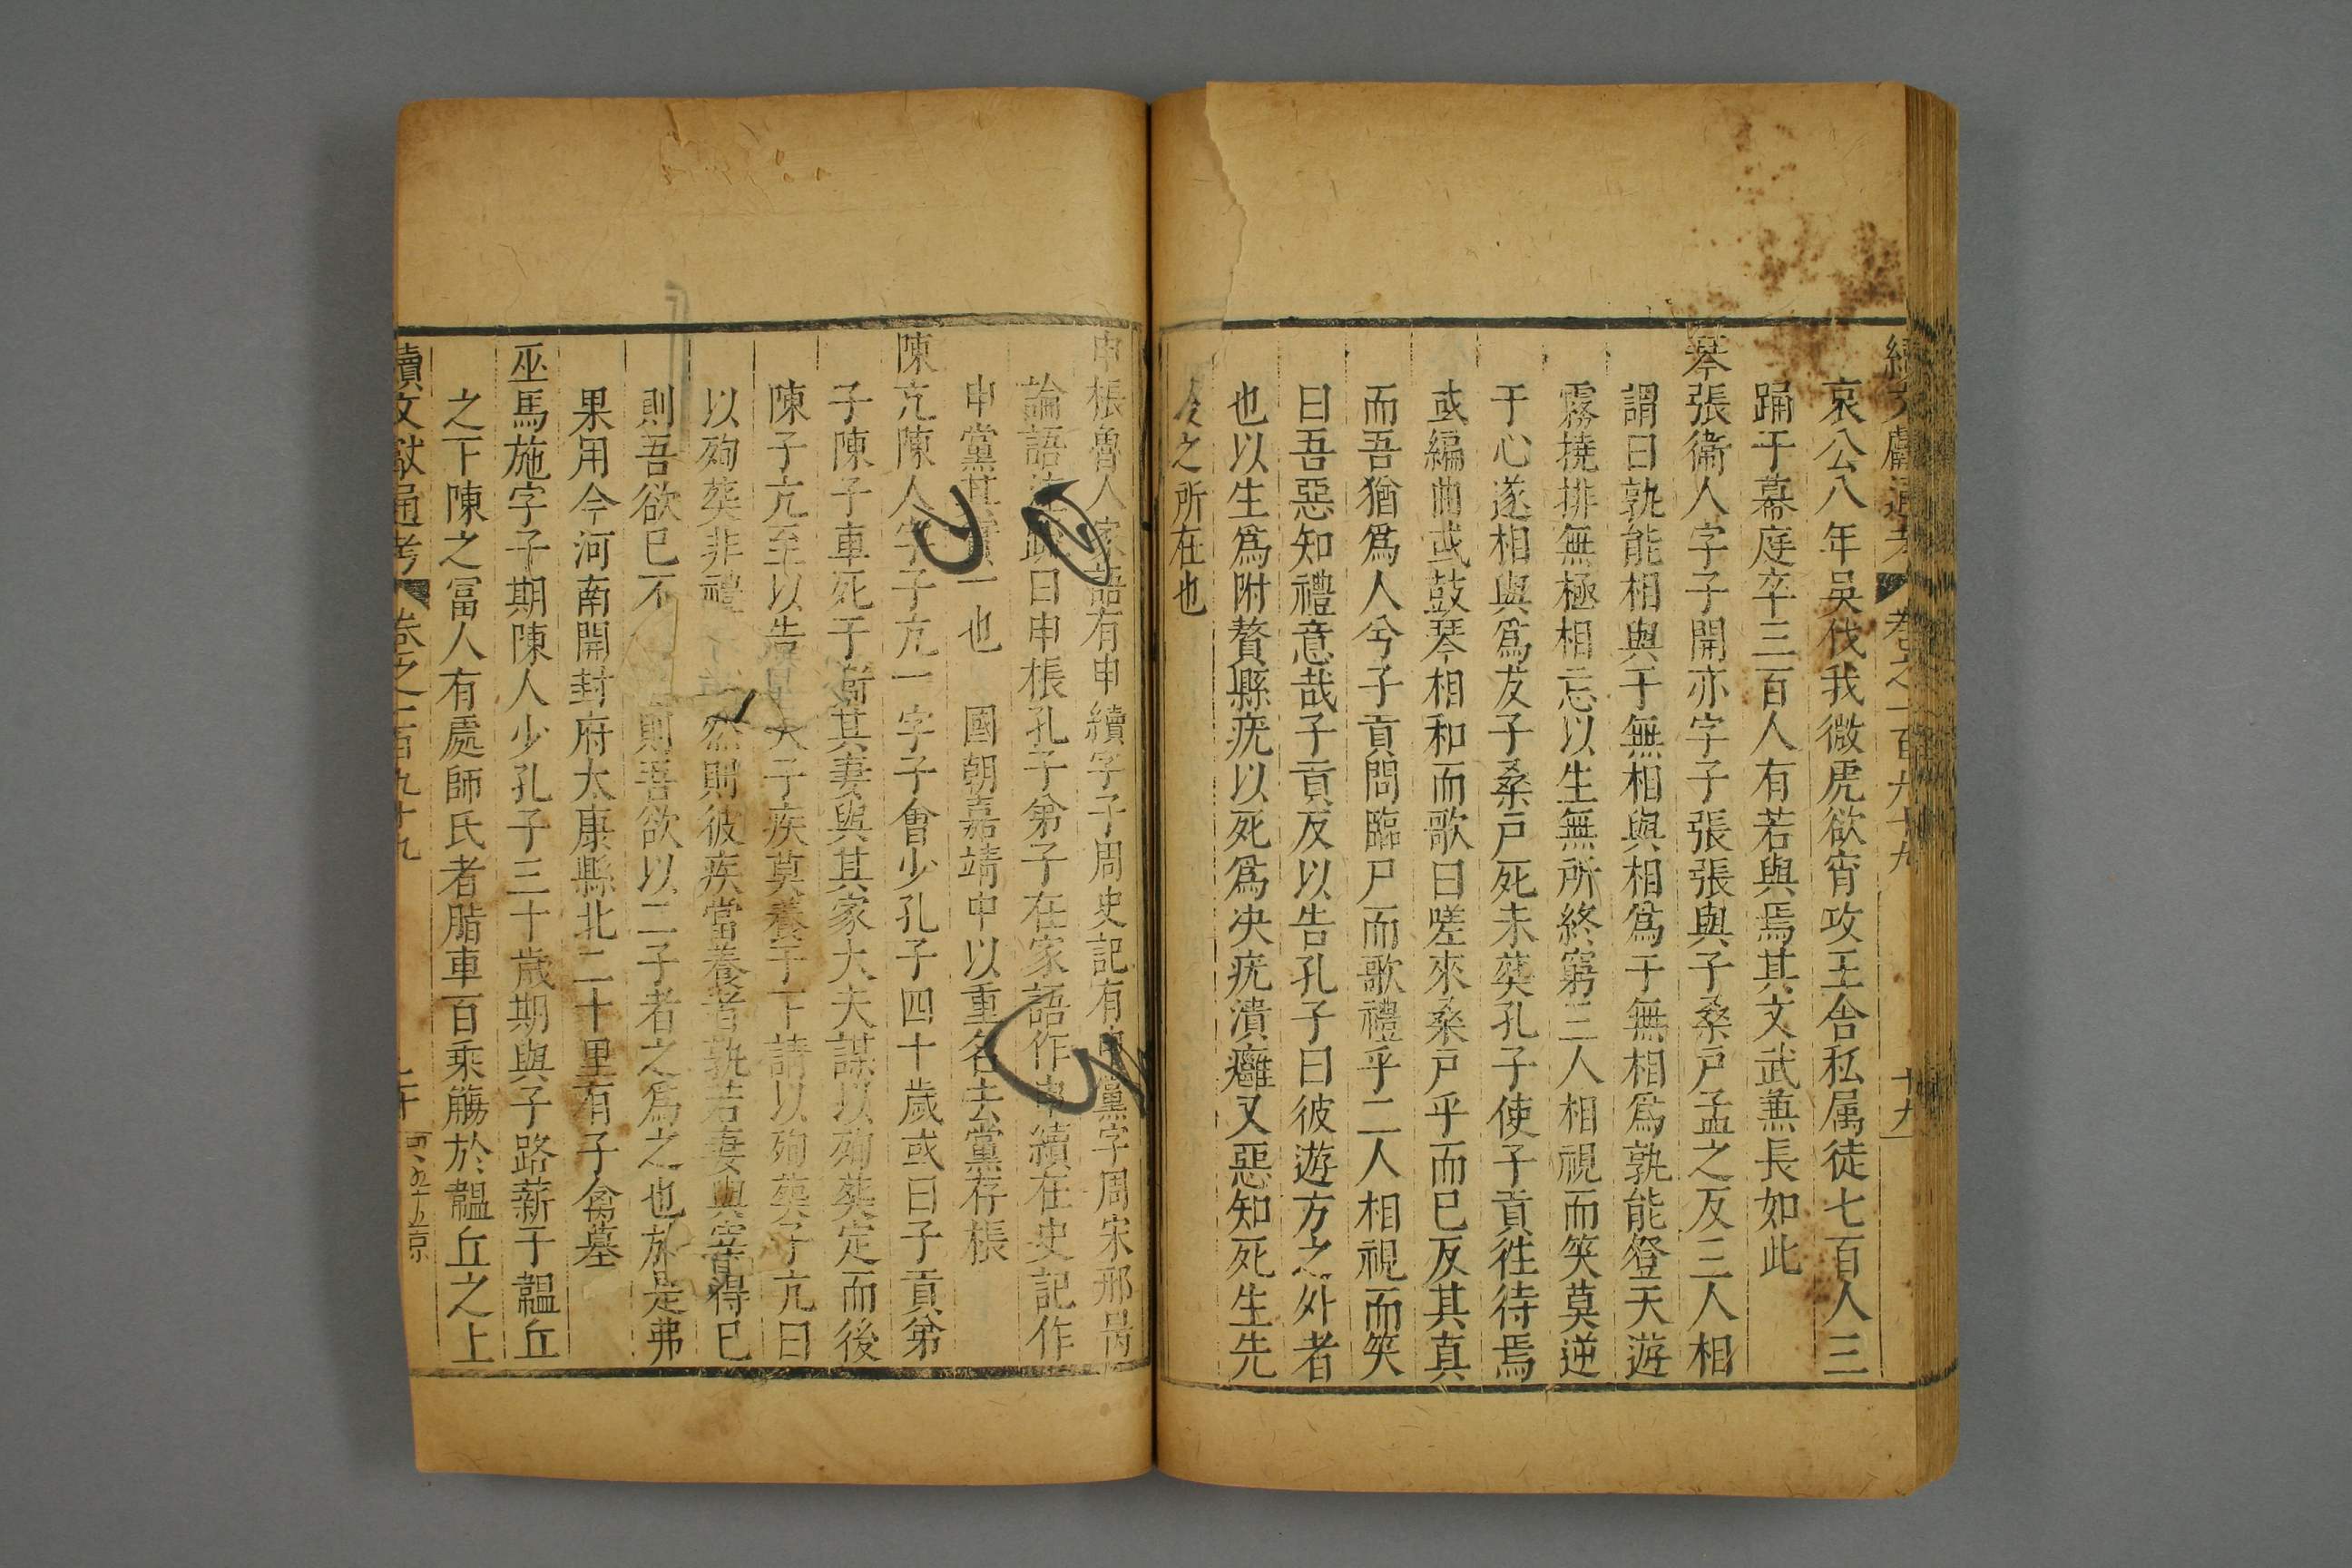 續文獻通考 卷之一百九十九 十九
哀公八年吳伐我微虎欲宵攻王舍私属徒七百人三
踊于幕庭卒三百人有若與焉其文武兼長如此
琴張衞人字子開亦字子張張與子桑戸孟之反三人相
謂曰孰能相與于無相與相爲于無相爲孰能登天遊
霧撓挑無極相忘以生無所終窮三人相視而笑莫逆
于心遂相與爲友子桑戸死未葬孔子使子貢徃待焉
或編曲或鼓琴相和而歌曰嗟來桑戸乎而已反其真
而吾猶爲人兮子貢問臨尸而歌禮乎二人相視而笑
曰吾惡知禮意哉子貢反以告孔子曰彼遊方之外者
也以生爲附贅縣疣以死爲决疣潰癰又惡知死生先
之所在也
申棖魯人家語有申續字子周史記有申黨字周宋邢昺
論語曰申棖孔子弟子在家語作申續在史記作
申黨其實一也 國朝嘉靖中以重名去黨存棖
陳亢陳人字子亢一字子會少孔子四十歲或曰子貢弟
子陳子車死于衞其妻與其家大夫謀以殉葬定而後
陳子亢至以告夫子疾莫養于下請以殉葬子亢曰
以殉葬非禮然則彼疾當養者孰若妻與宰得已
則吾欲已不則吾欲以二子者之爲之也於是弗
果用今河南開封府太康縣北二十里有子禽墓
巫馬施字子期陳人少孔子三十歲期與子路薪于韞丘
之下陳之富人有處師氏者脂車百乘觴於韞丘之上
續文獻通考 卷之一百九十九 二十